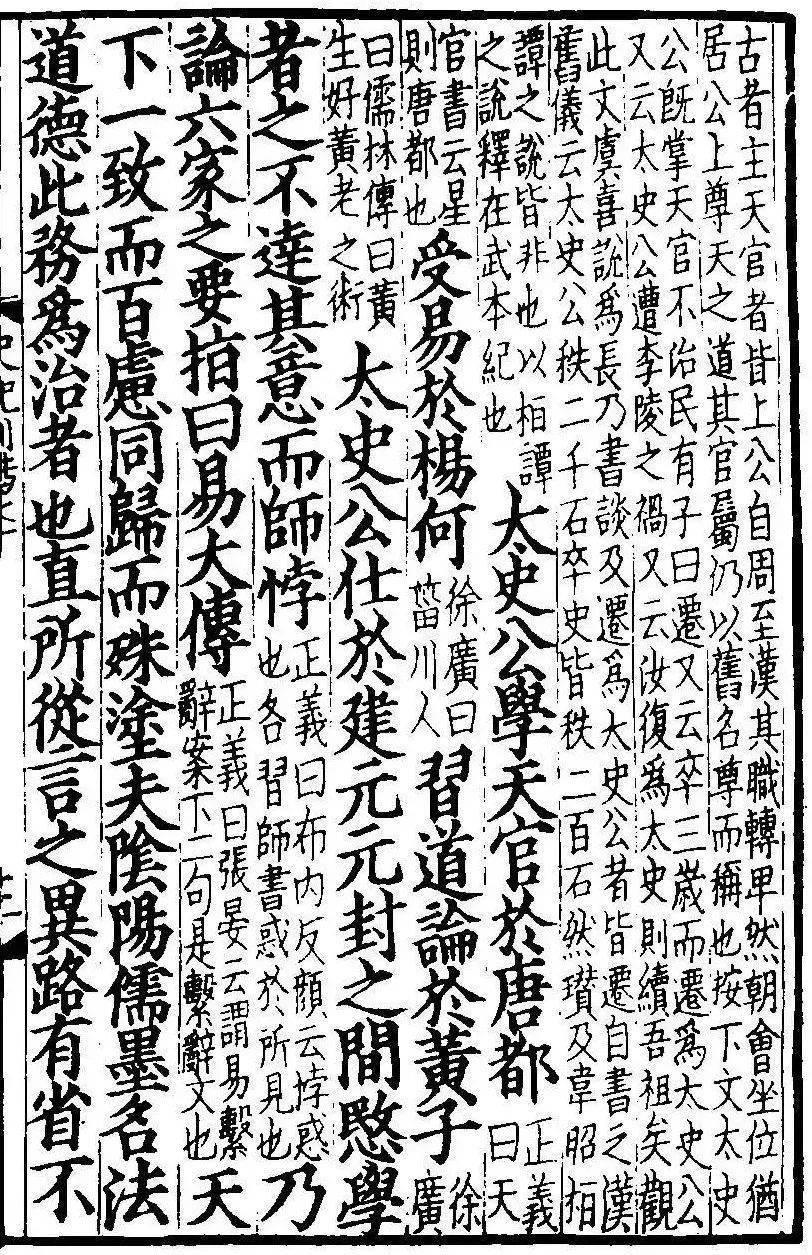 古者主天官者皆上公自周至漢其職轉卑然朝會坐位猶
居公上尊天之道其官屬仍以舊名尊而稱也按下文太史
公既掌天官不治民有子曰遷又云卒三歲而遷爲太史公
又云太史公遭李陵之禍又云汝復爲太史則續吾祖矣觀
此文虞喜說爲長乃書談及遷爲太史公者皆遷自書之漢
舊儀云太史公秩二千石卒史皆秩二百石然瓚及韋昭桓
譚之說皆非也以桓譚
之說釋在武本紀也
太史公學天官於唐都
正義
曰天
官書云星
則唐都也
受易於楊何
徐廣曰
菑川人
習道論於黃子
徐
廣
曰儒林傳曰黃
生好黃老之術
太史公仕於建元元封之間愍學
者之不達其意而師悖
正義曰布內反顏云悖惑
也各習師書惑於所見也
乃
論六家之要指曰易大傳
正義曰張晏云謂易繫
辭案下二句是繫辭文也
天
下一致而百慮同歸而殊塗夫陰陽儒墨名法
道德此務爲治者也直所從言之異路有省不